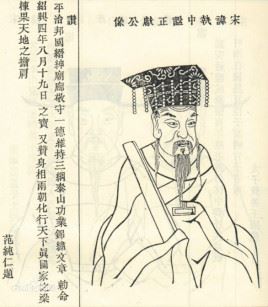 宋諱執中謚正獻公像
讚
平治邦國縉紳廟廊敬守一德維持三綱泰山功業錦繡文章 勅命
紹興四年八月十九日之寶 又贊身相兩朝化行天下眞國家之梁
棟果天地之擔肩
范純仁題